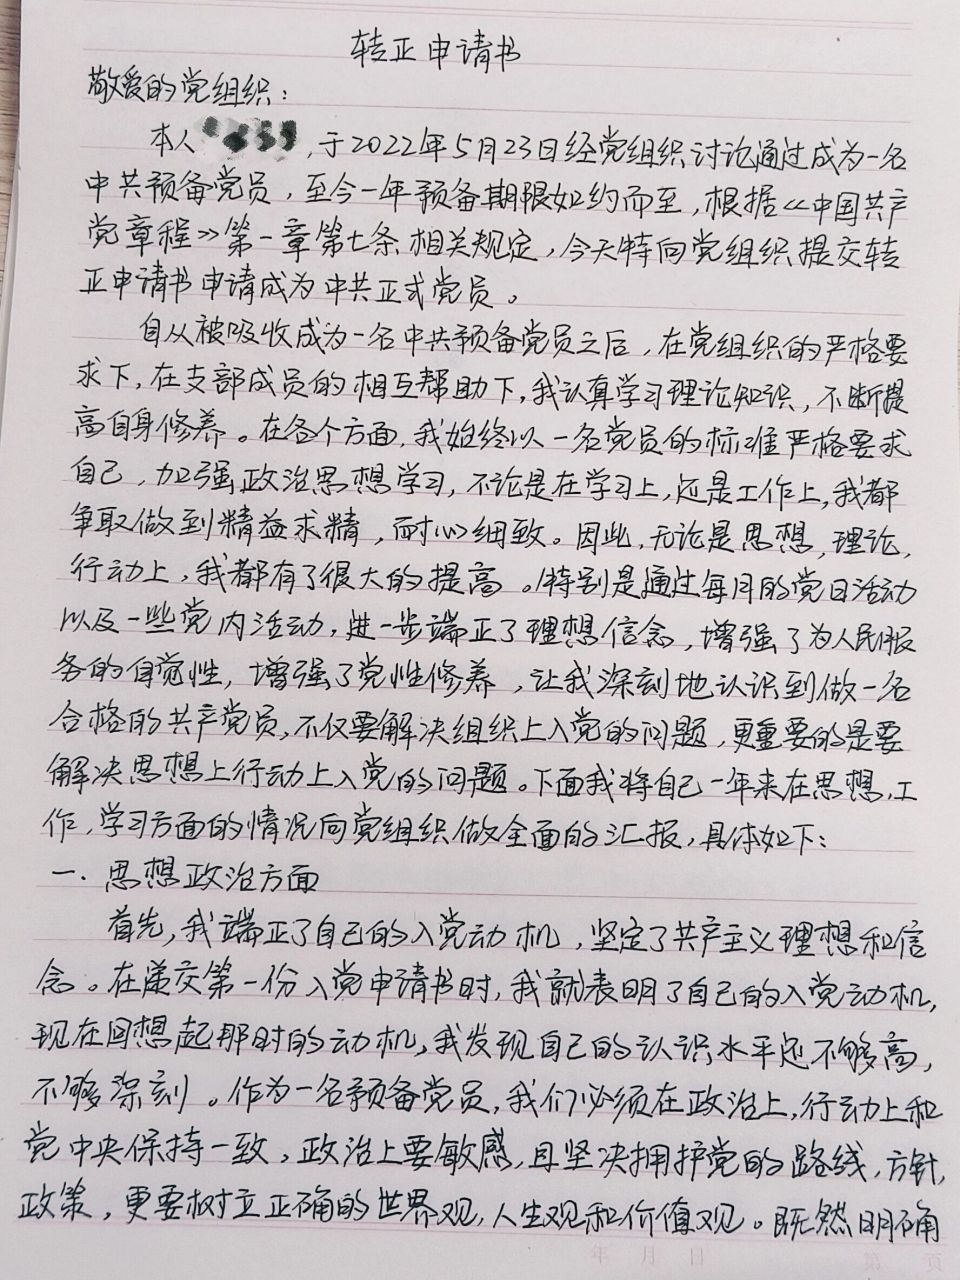 转正申请书
敬爱的党组织：
本人，于2022年5月23日经党组织讨论通过成为一名
中共预备党员，至今一年预备期限如约而至，根据《中国共产
党章程》第一章第七条相关规定，今天特向党组织提交转
正申请书申请成为中共正式党员。
自从被吸收成为一名中共预备党员之后，在党组织的严格要
求下，在支部成员的相互帮助下，我认真学习理论知识，不断提
高自身修养。在各个方面，我始终以一名党员的标准严格要求
自己，加强政治思想学习，不论是在学习上，还是工作上，我都
争取做到精益求精，耐心细致。因此，无论是思想，理论，
行动上，我都有了很大的提高。特别是通过每月的党日活动
以及一些党内活动，进一步端正了理想信念，增强了为人民服
务的自觉性，增强了党性修养，让我深刻地认识到做一名
合格的共产党员，不仅要解决组织上入党的问题，更重要的是要
解决思想上行动上入党的问题。下面我将自己一年来在思想，工
作，学习方面的情况向党组织做全面的汇报，具体如下：
一．思想政治方面
首先，我端正了自己的入党动机，坚定了共产主义理想和信
念。在递交第一份入党申请书时，我就表明了自己的入党动机，
现在回想起那时的动机，我发现自己的认识水平还不够高，
不够深刻。作为一名预备党员，我们必须在政治上，行动上和
党中央保持一致，政治上要敏感，且坚决拥护党的路线，方针，
政策，更要树立正确的世界观，人生观和价值观。既然明确
年 月 日 第 页